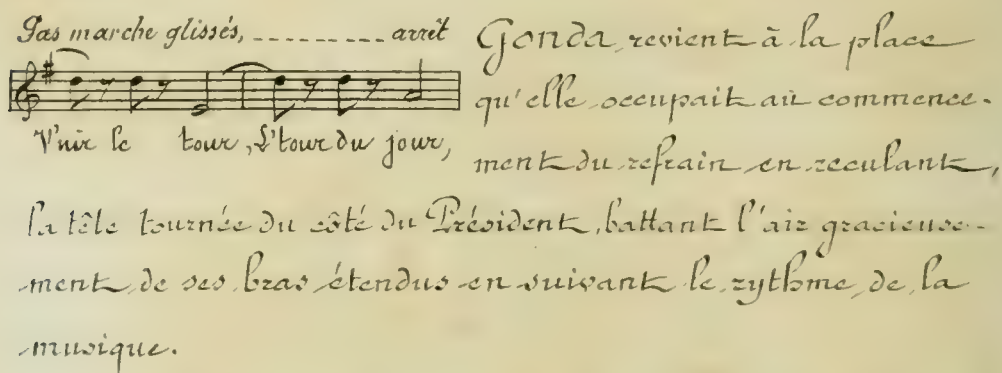 Pas marche glissés, _ _ _ _ _ _ _ _ _ arrêt
V'nir le tour, L'tour du jour,
Gonda revient à la place
qu'elle occupait au commence-
ment du refrain en reculant,
la tête tournée du côté du Président, battant l'air gracieuse-
ment de ses bras étendus en suivant le rythme de la
musique.